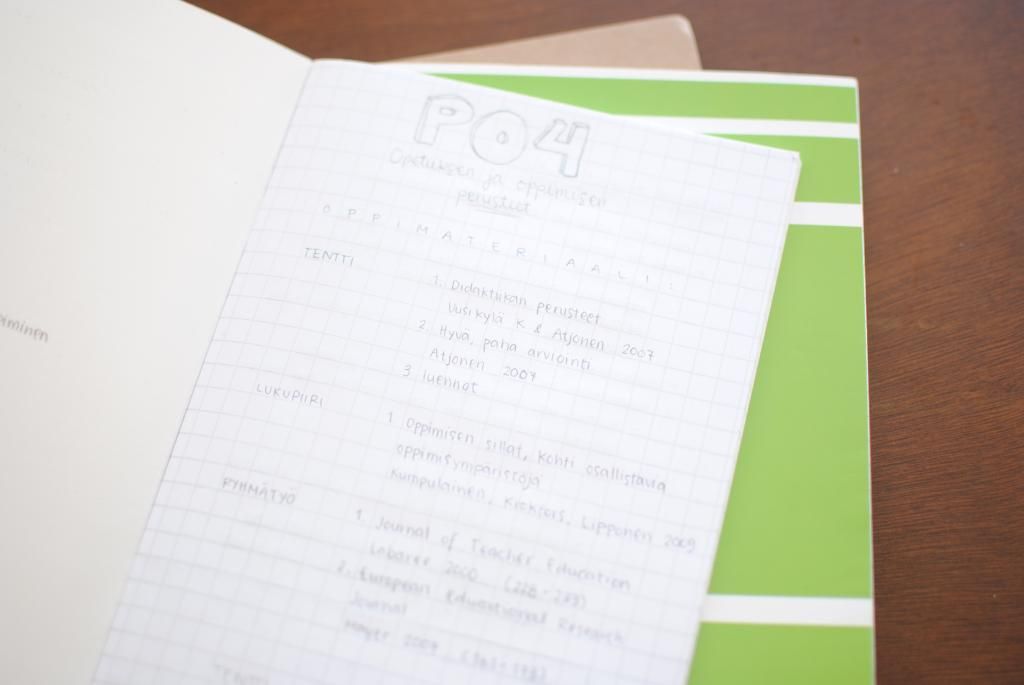 PO4
Opetuksen ja oppimisen
perusteet
OPPIMATERIAALI:
TENTTI
1. Didaktiikan perusteet
Uusikylä K & Atjonen 2007
2. Hyvä, paha arviointi
Atjonen 2007
3 luennot
LUKUPIIRI
1 Oppimisen sillat, kohti osallistavia
oppimisympäristöjä
Kumpulainen, Krokfors, Lipponen 2009
RYHMÄTYÖ
1. Journal of Teacher Education
Labaree 2000 (228-233)
2. European Educational Research
Journal
2009
TENTTI
iminen